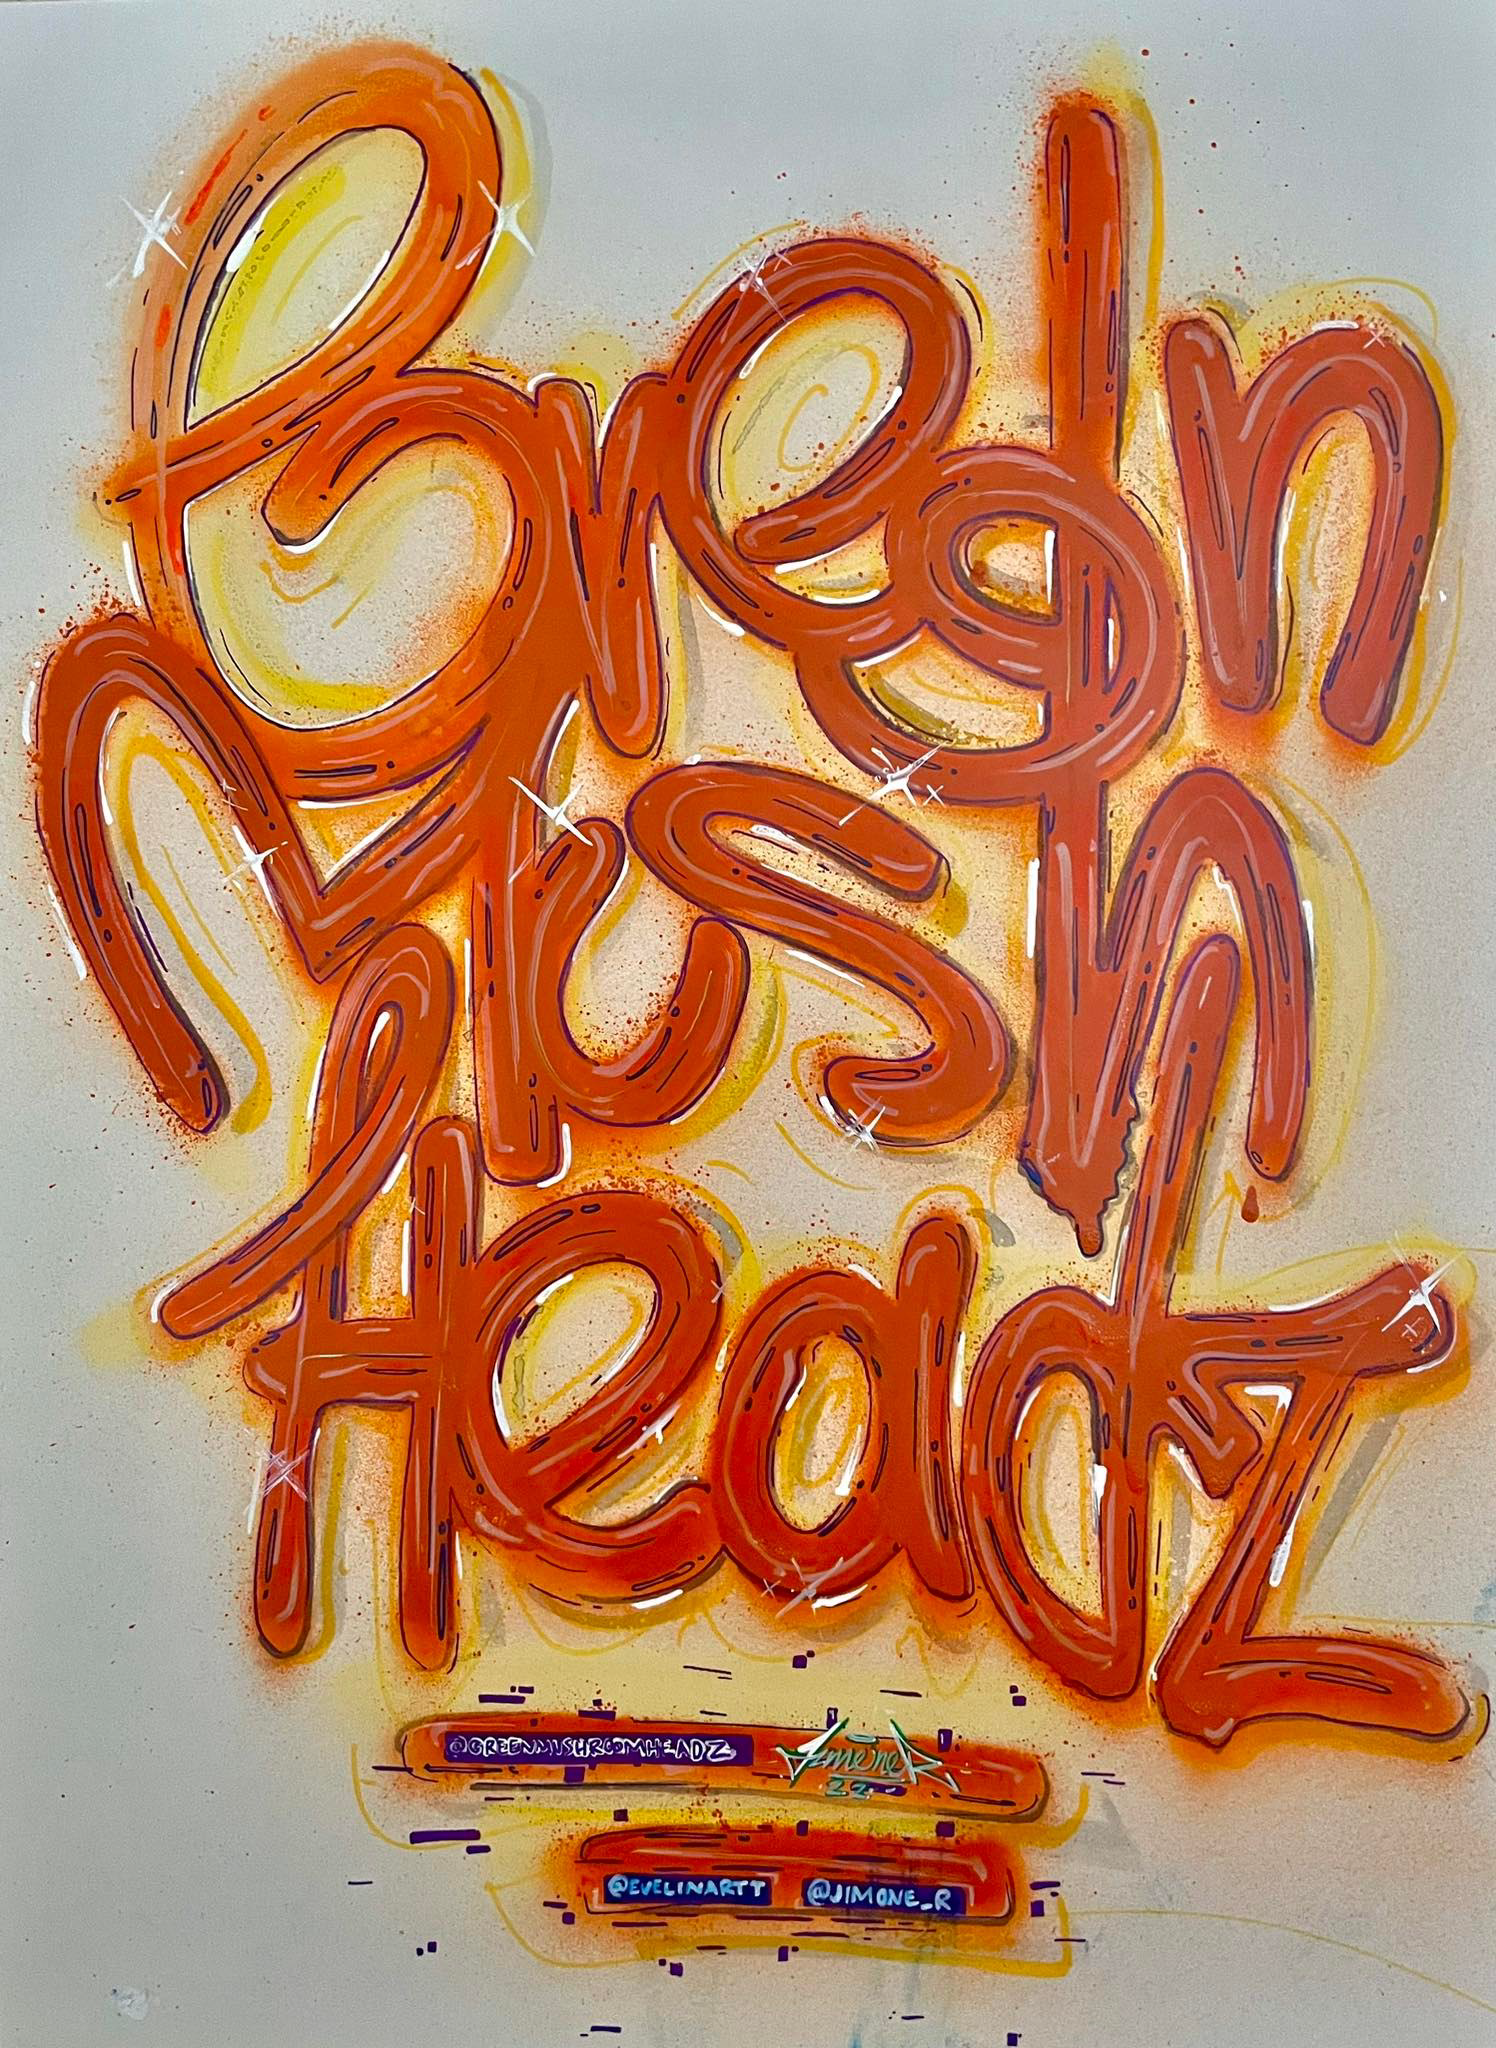 Green
Mush
Headz
@GREENMUSHROOMHEADZ JimoneR
22
@EVELINARTT @JIMONE_R